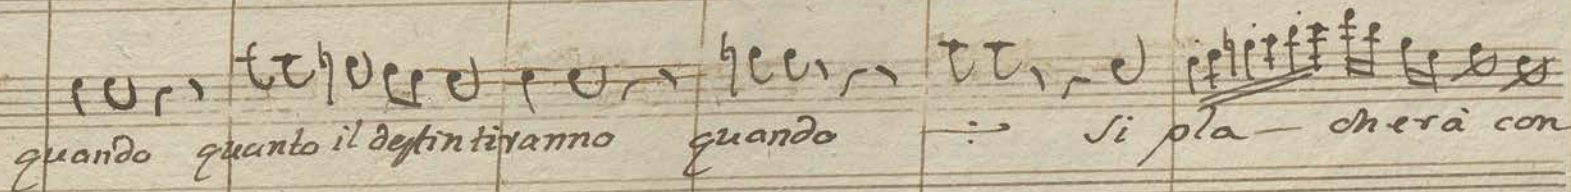 quando quanto il destin tiranno quando si pla - cherà con